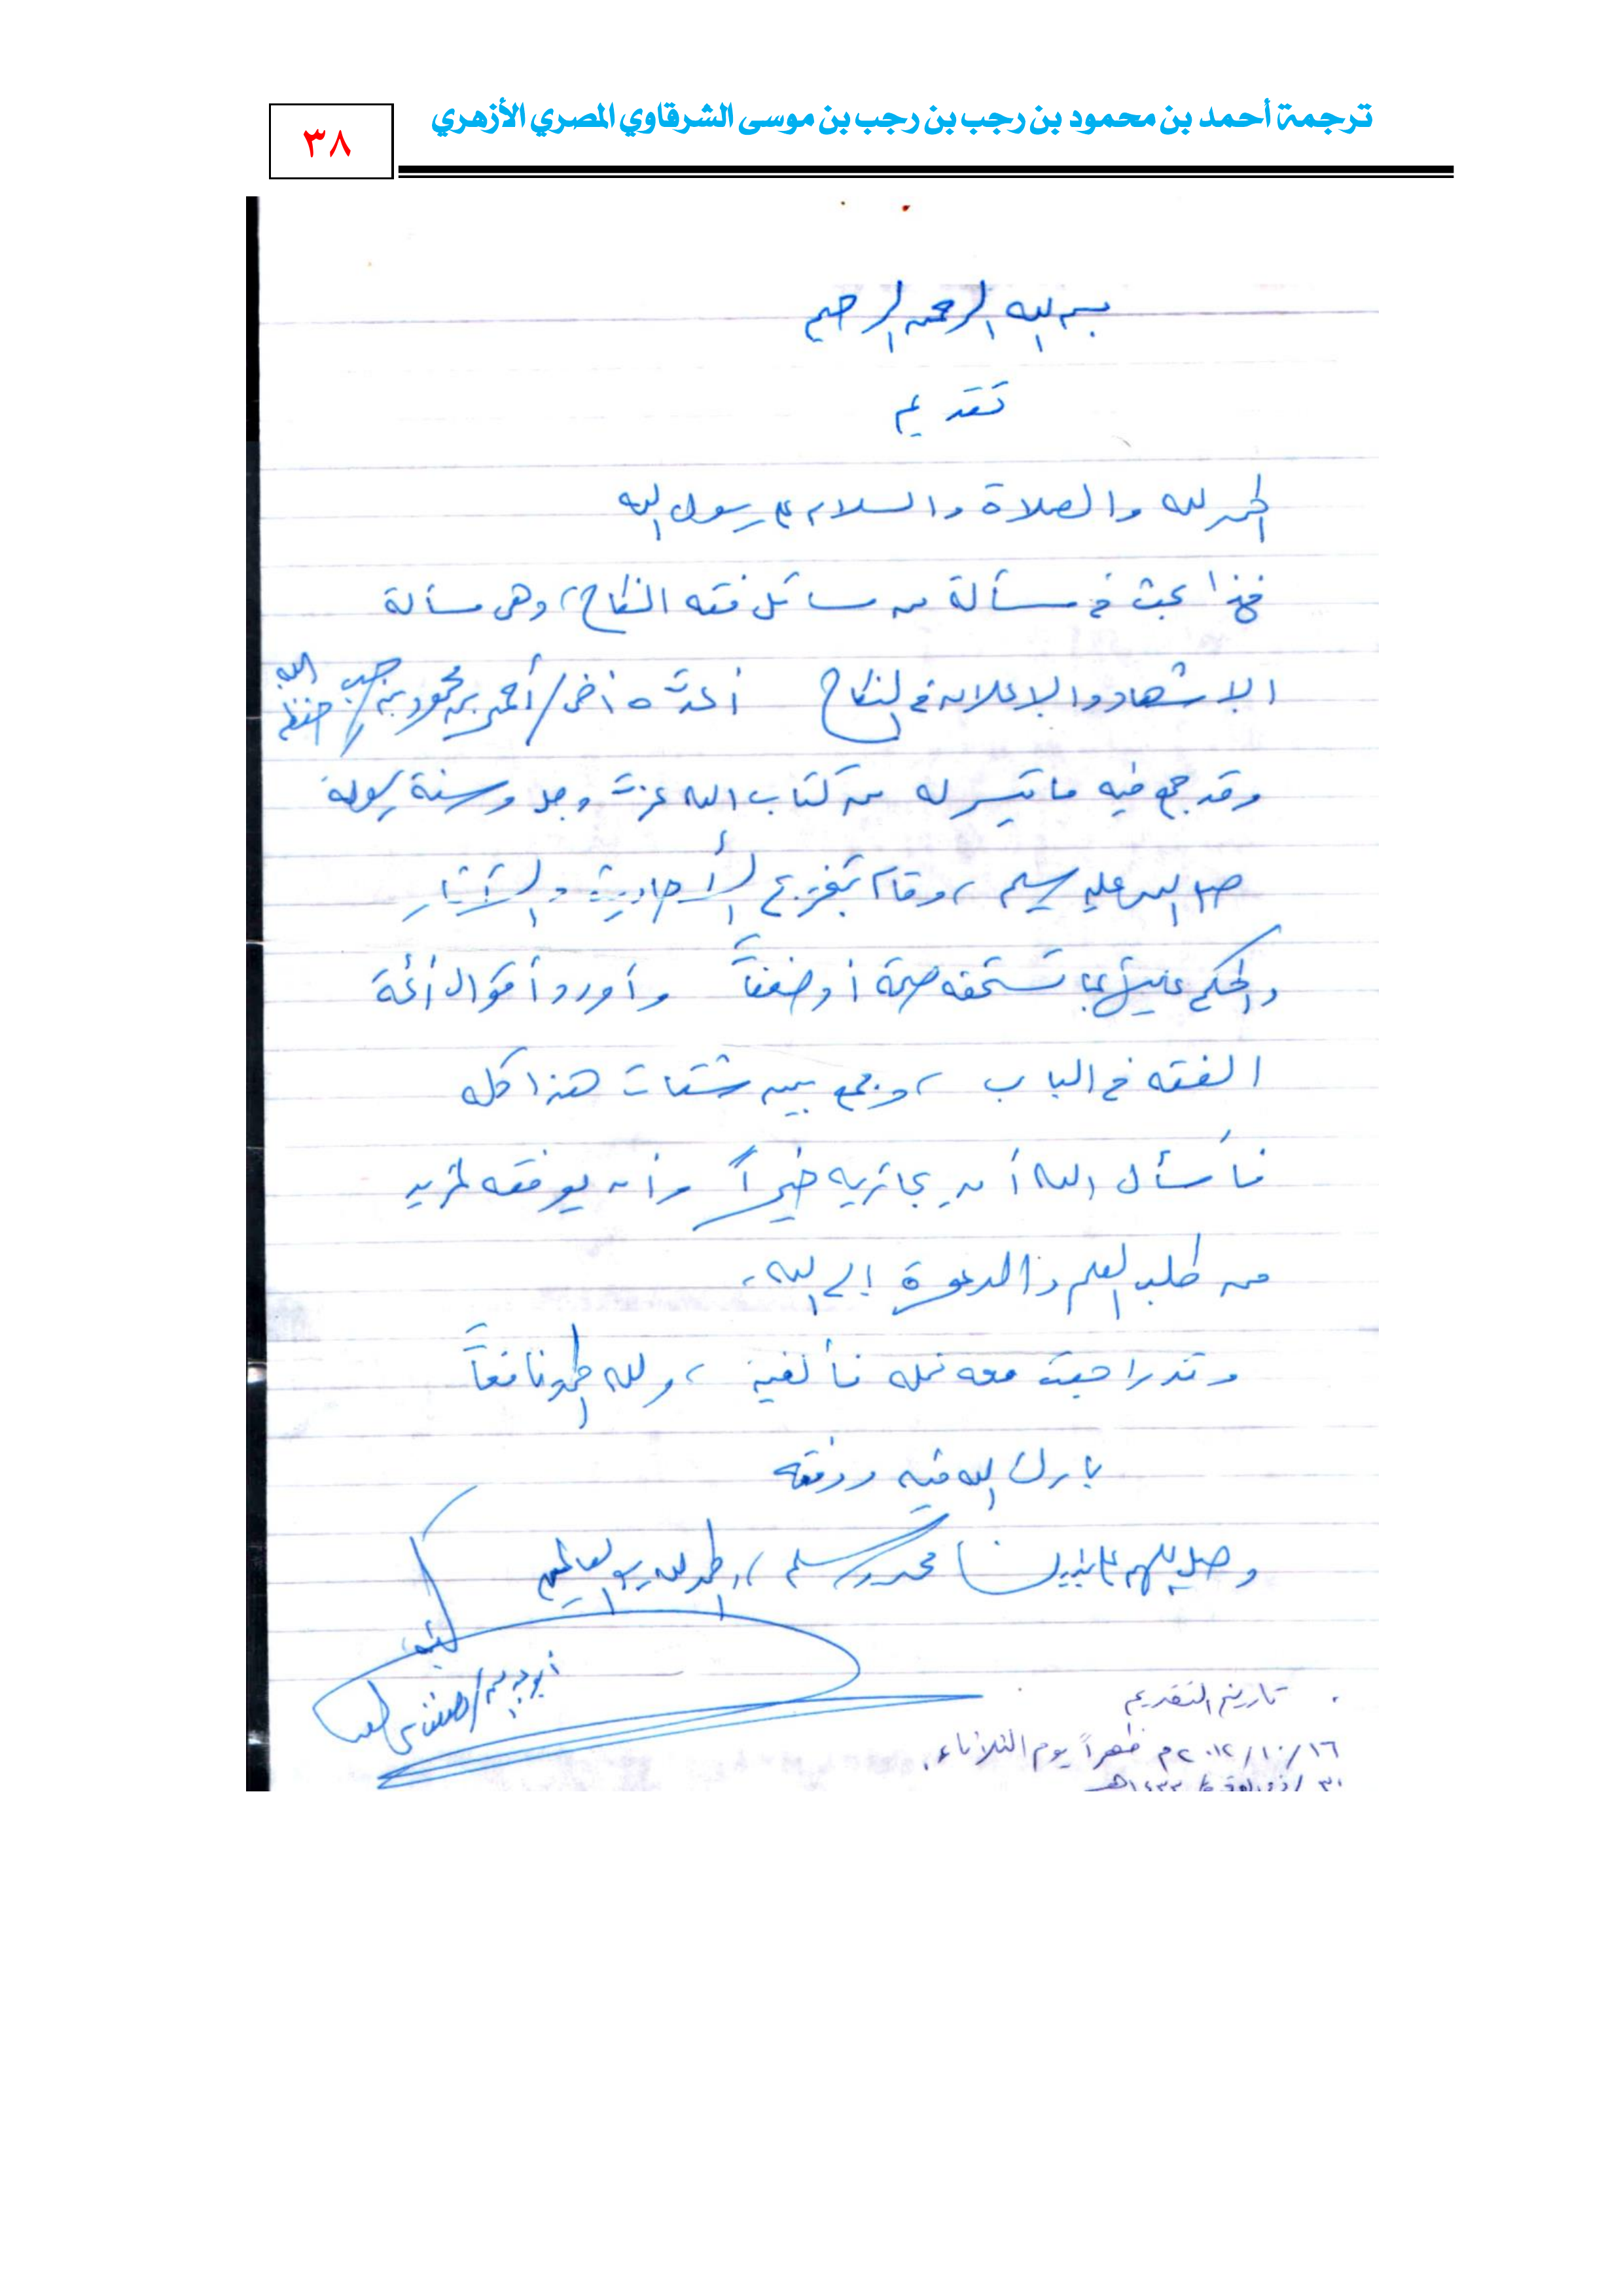 ترجمة أحمد بن محمود بن رجب بن رجب بن موسى الشرقاوي المصري الأزهري
٣٨
بسم الله الرحمن الرحيم
تقديم
الحمد لله والصلاة والسلام على رسول الله
فهذا بحث في مسألة من مسائل فقه النكاح، وهى مسألة
الإشهاد والإعلان في النكاح أعده أخى/ أحمد بن محمود بن رجب حفظه الله
وقد جمع فيه ما تيسر له من كتاب الله عزت وجل وسنة رسوله
صلى الله عليه وسلم، وقام بتخريج الأحاديث والآثار
والحكم عليها بما تستحقه صحة أو ضعفاً وأورد أقوال أئمة
الفقه في الباب، وجمع بين شتات هذا كله
فأسأل الله أن يجازيه خيراً وأن يوفقه لمزيد
من طلب العلم والدعوة إلى الله.
وقد راجعت معه عمله فألفيته، ولله الحمد نافعاً
بارك الله فيه ووفقه
وصل اللهم على نبينا محمد وسلم، والحمد لله رب العالمين
كتبه
تاريخ التقديم
١٦/١٠/٢٠١٢م ظهراً يوم الثلاثاء.
٣٠/ذى القعدة/١٤٣٣هـ